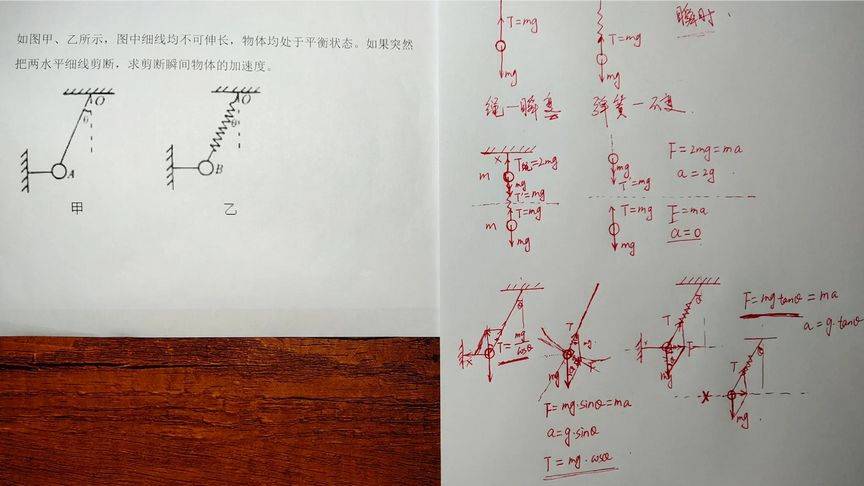 如图甲、乙所示，图中细线均不可伸长，物体均处于平衡状态。如果突然
把两水平细线剪断，求剪断瞬间物体的加速度。
O
θ
A
甲
O
θ
B
乙
T=mg
mg
T=mg
mg
瞬时
绳一瞬变
弹簧一不变
×
m
T绳=2mg
mg
T'=mg
T=mg
m
mg
mg
T'=mg
F=2mg=ma
a=2g
T=mg
mg
F=ma
a=0
θ
×
T=mg/cosθ
T
mg
F=mg·sinθ=ma
a=g·sinθ
T=mg·cosθ
θ
T
F
mg
F=mgtanθ=ma
a=g·tanθ
θ
T
×
mg